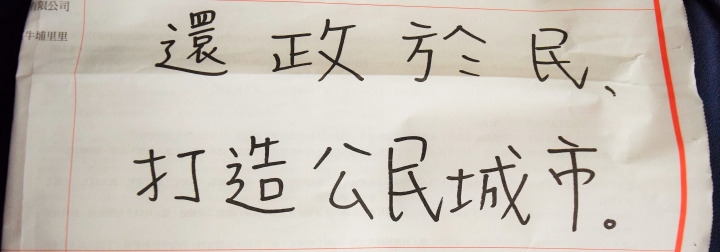 限公司
牛埔里里
還政於民、
打造公民城市。